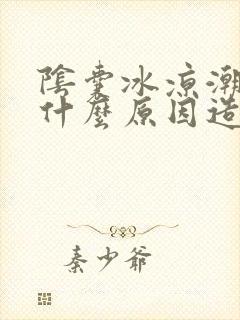 陰囊冰涼潮
什麼原因造
秦少爺